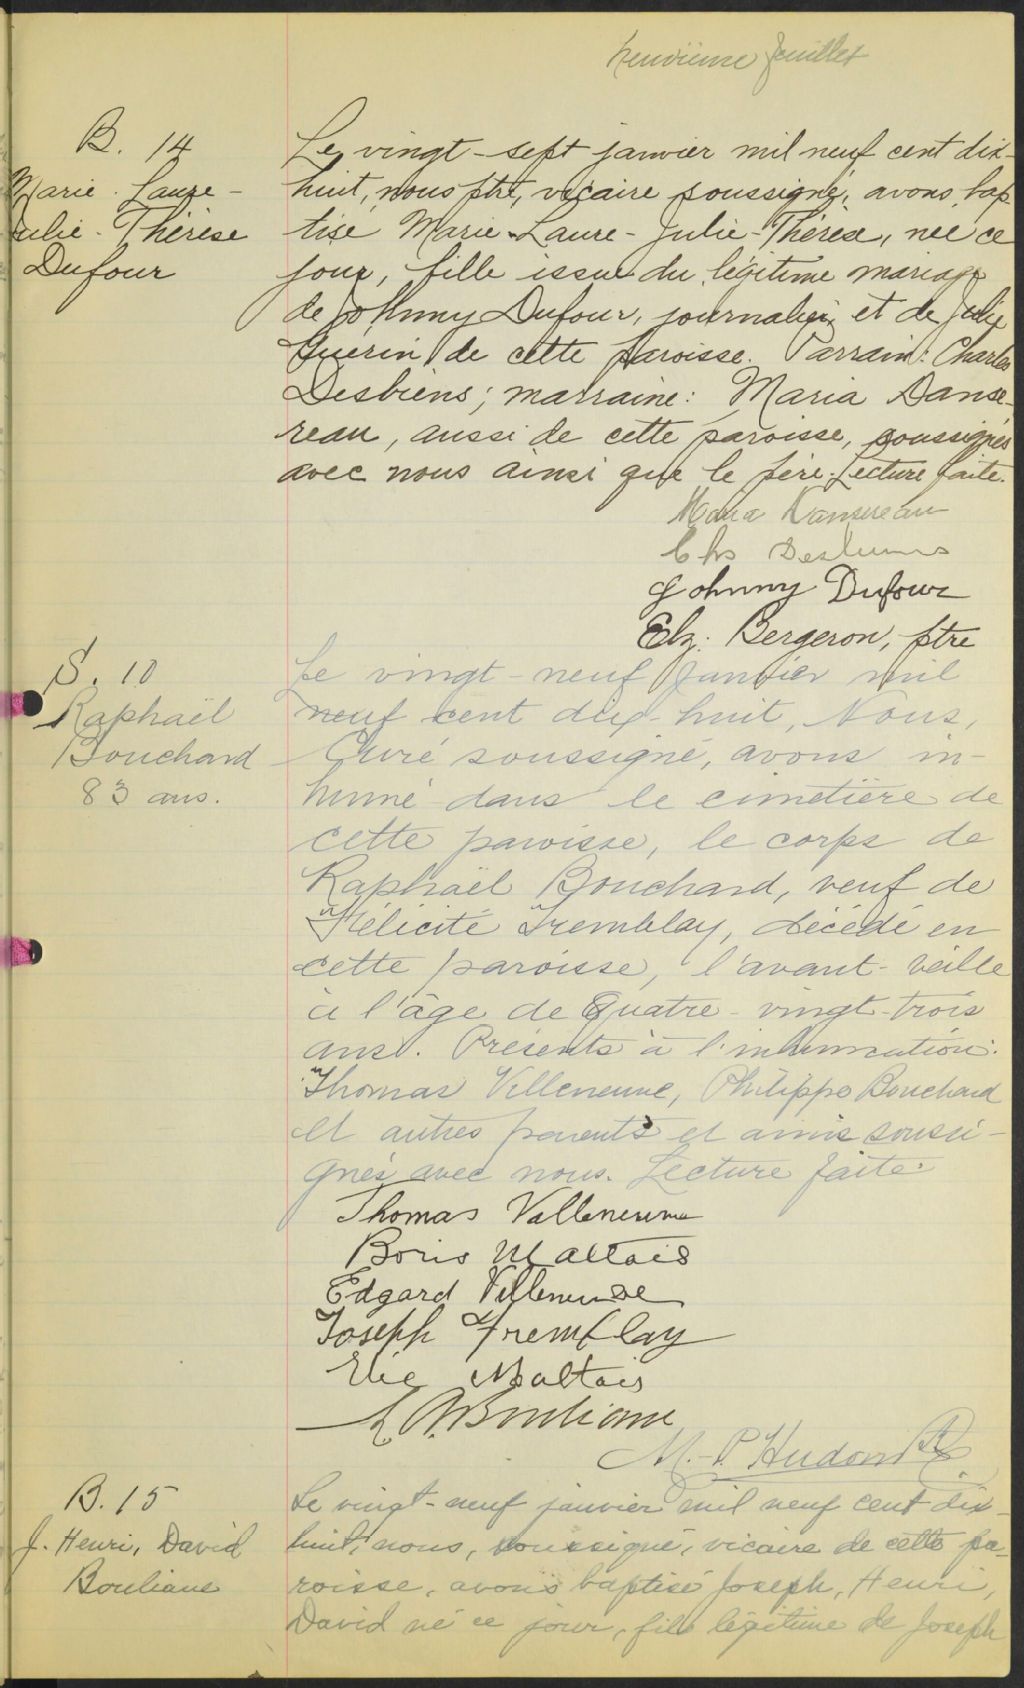 neuvième feuillet
B. 14
Marie-Laure-
Julie-Thérèse
Dufour
Le vingt-sept janvier mil neuf cent dix-
huit, nous ptre, vicaire soussigné, avons bap-
tisé Marie-Laure-Julie-Thérèse, née ce
jour, fille issue du légitime mariage
de Johnny Dufour, journalier, et de Julie
Guerin de cette paroisse. Parrain: Charles
Desbiens; marraine: Maria Danse-
reau, aussi de cette paroisse, soussignés
avec nous ainsi que le père. Lecture faite.
Maria Dansereau
Chs Desbiens
Johnny Dufour
Elz. Bergeron, ptre
S. 10
Raphaël
Bouchard
83 ans.
Le vingt-neuf Janvier mil
neuf cent dix-huit, Nous,
Curé soussigné, avons in-
humé dans le cimetière de
cette paroisse, le corps de
Raphaël Bouchard, veuf de
Félicité Tremblay, décédé en
cette paroisse, l'avant-veille
à l'âge de Quatre-vingt-trois
ans. Présents à l'inhumation:
Thomas Villeneuve, Philippe Bouchard
et autres parents et amis soussi-
gnés avec nous. Lecture faite.
Thomas Villeneuve
Boris Maltais
Edgard Villeneuve
Joseph Tremblay
Elie Maltais
Bouliane
M.-P. Hudon Ptre
B. 15
J. Henri, David
Bouliane
Le vingt-neuf janvier mil neuf cent dix-
huit, nous, soussigné, vicaire de cette pa-
roisse, avons baptisé Joseph, Henri,
David né ce jour, fils légitime de Joseph